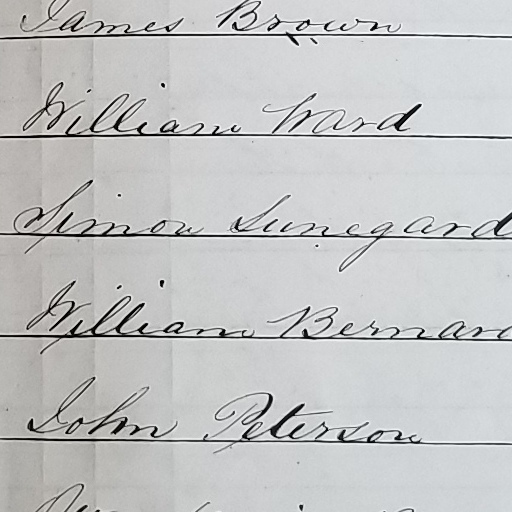 James Brown
William Ward
Simon Lunegard
William Bernard
John Peterson